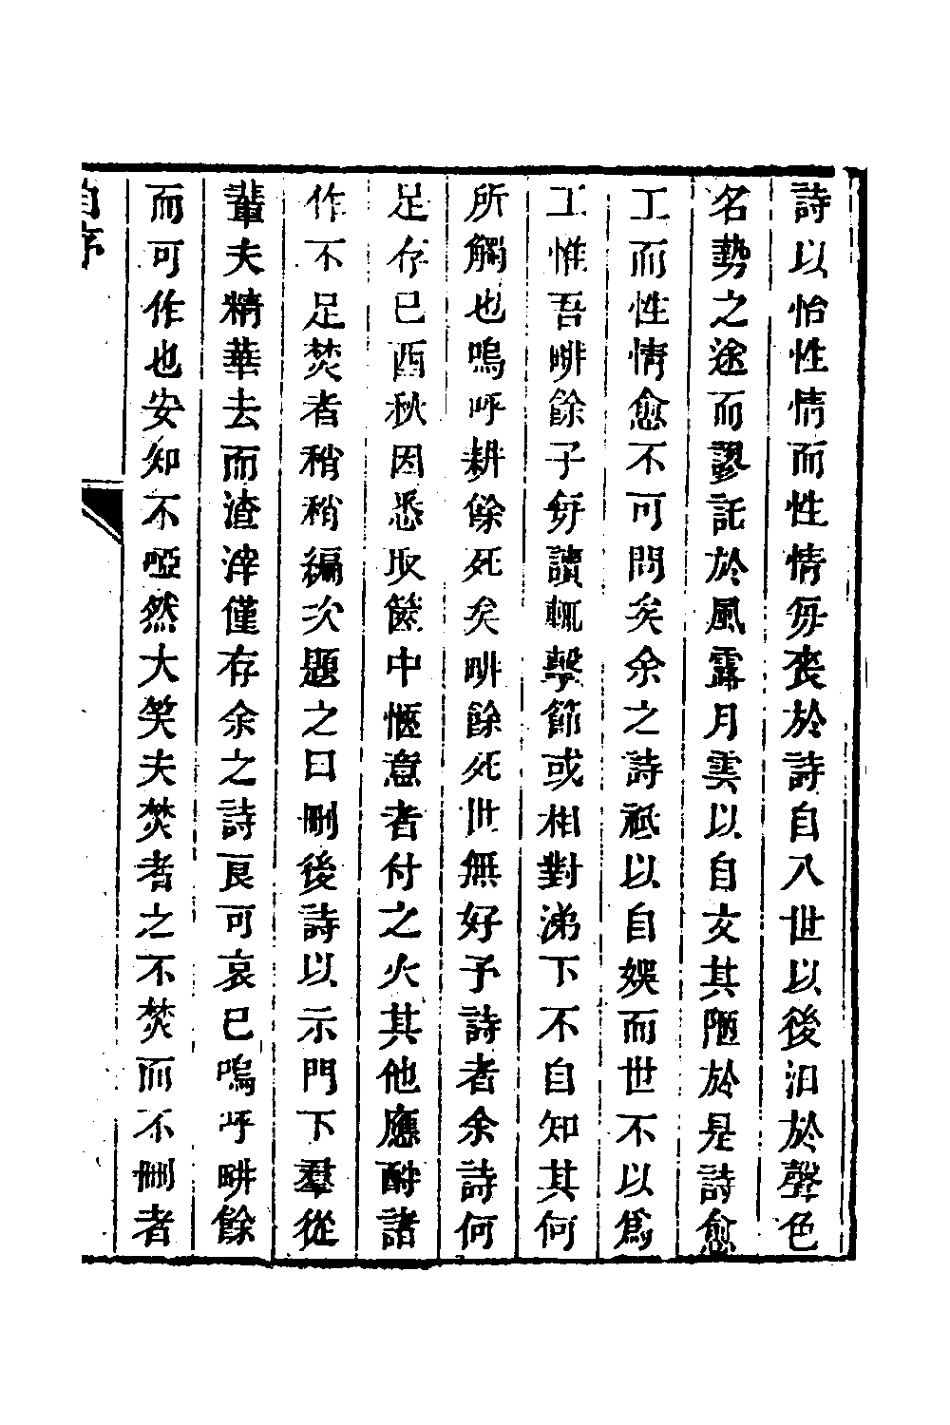 詩以怡性情而性情每喪於詩自入世以後汩於聲色
名勢之途而謬託於風露月雲以自文其陋於是詩愈
工而性情愈不可問矣余之詩祗以自娛而世不以爲
工惟吾畊餘子每讀輒擊節或相對涕下不自知其何
所觸也嗚呼耕餘死矣畊餘死世無好予詩者余詩何
足存已酉秋因悉取篋中愜意者付之火其他應酧諸
作不足焚者稍稍編次題之曰刪後詩以示門下羣從
輩夫精華去而渣滓僅存余之詩良可哀已嗚呼畊餘
而可作也安知不啞然大笑夫焚者之不焚而不刪者
自序